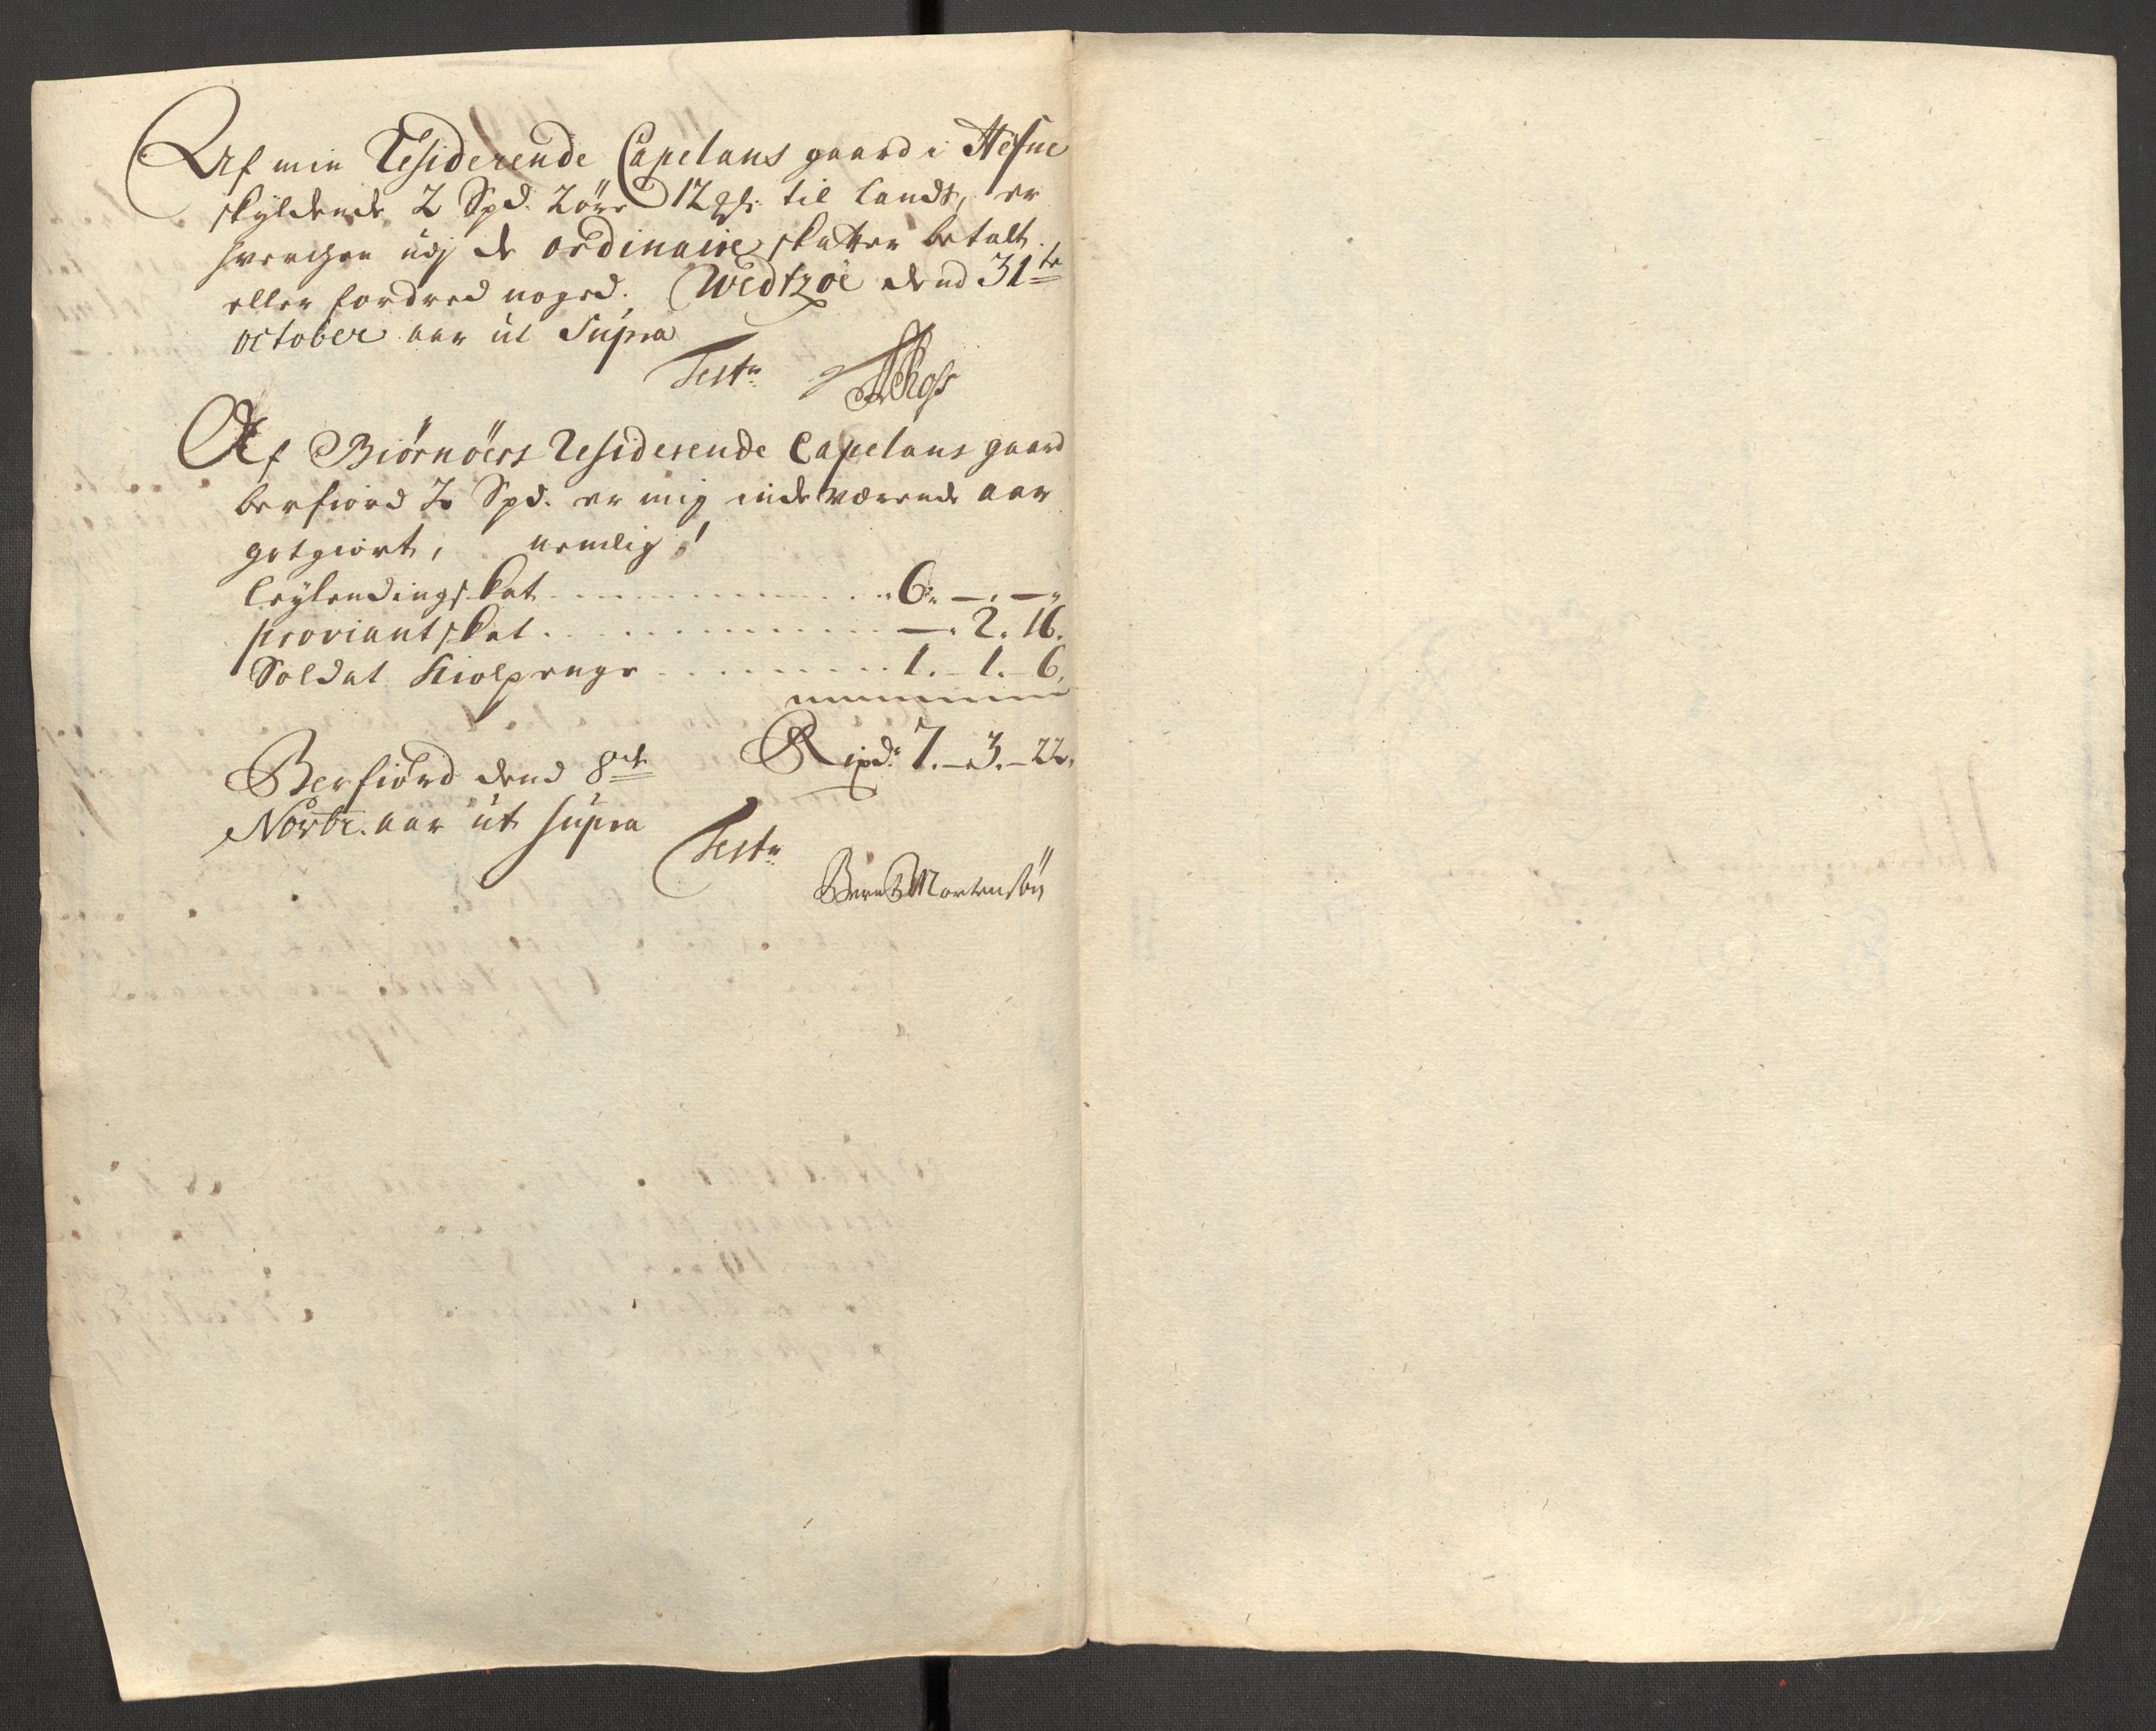 Af min Residerende Capelans gaard i Hefne
skyldende 2 Spd. 2 öre 12 til Lands, er
hverchen udj de ordinaire skatter betalt
eller fordred noged. Wedtzöe dend 31te
october aar ut Supra
Test.
Af Biörnöers Residerende Capelans gaard
berfiord 3 Spd. er mig inde werende aar
gotgiort, nemlig!
Leylendingskat - - - 6. — . — .
proviantskat . . . — . 2. 16.
Soldat Kiolpenge - - - 1. 1. 6.
Rixd. 7. - 3. - 22.
Berfiörd dend 8de
Novbr. aar ut supra
Test.
Bernt Mortensön